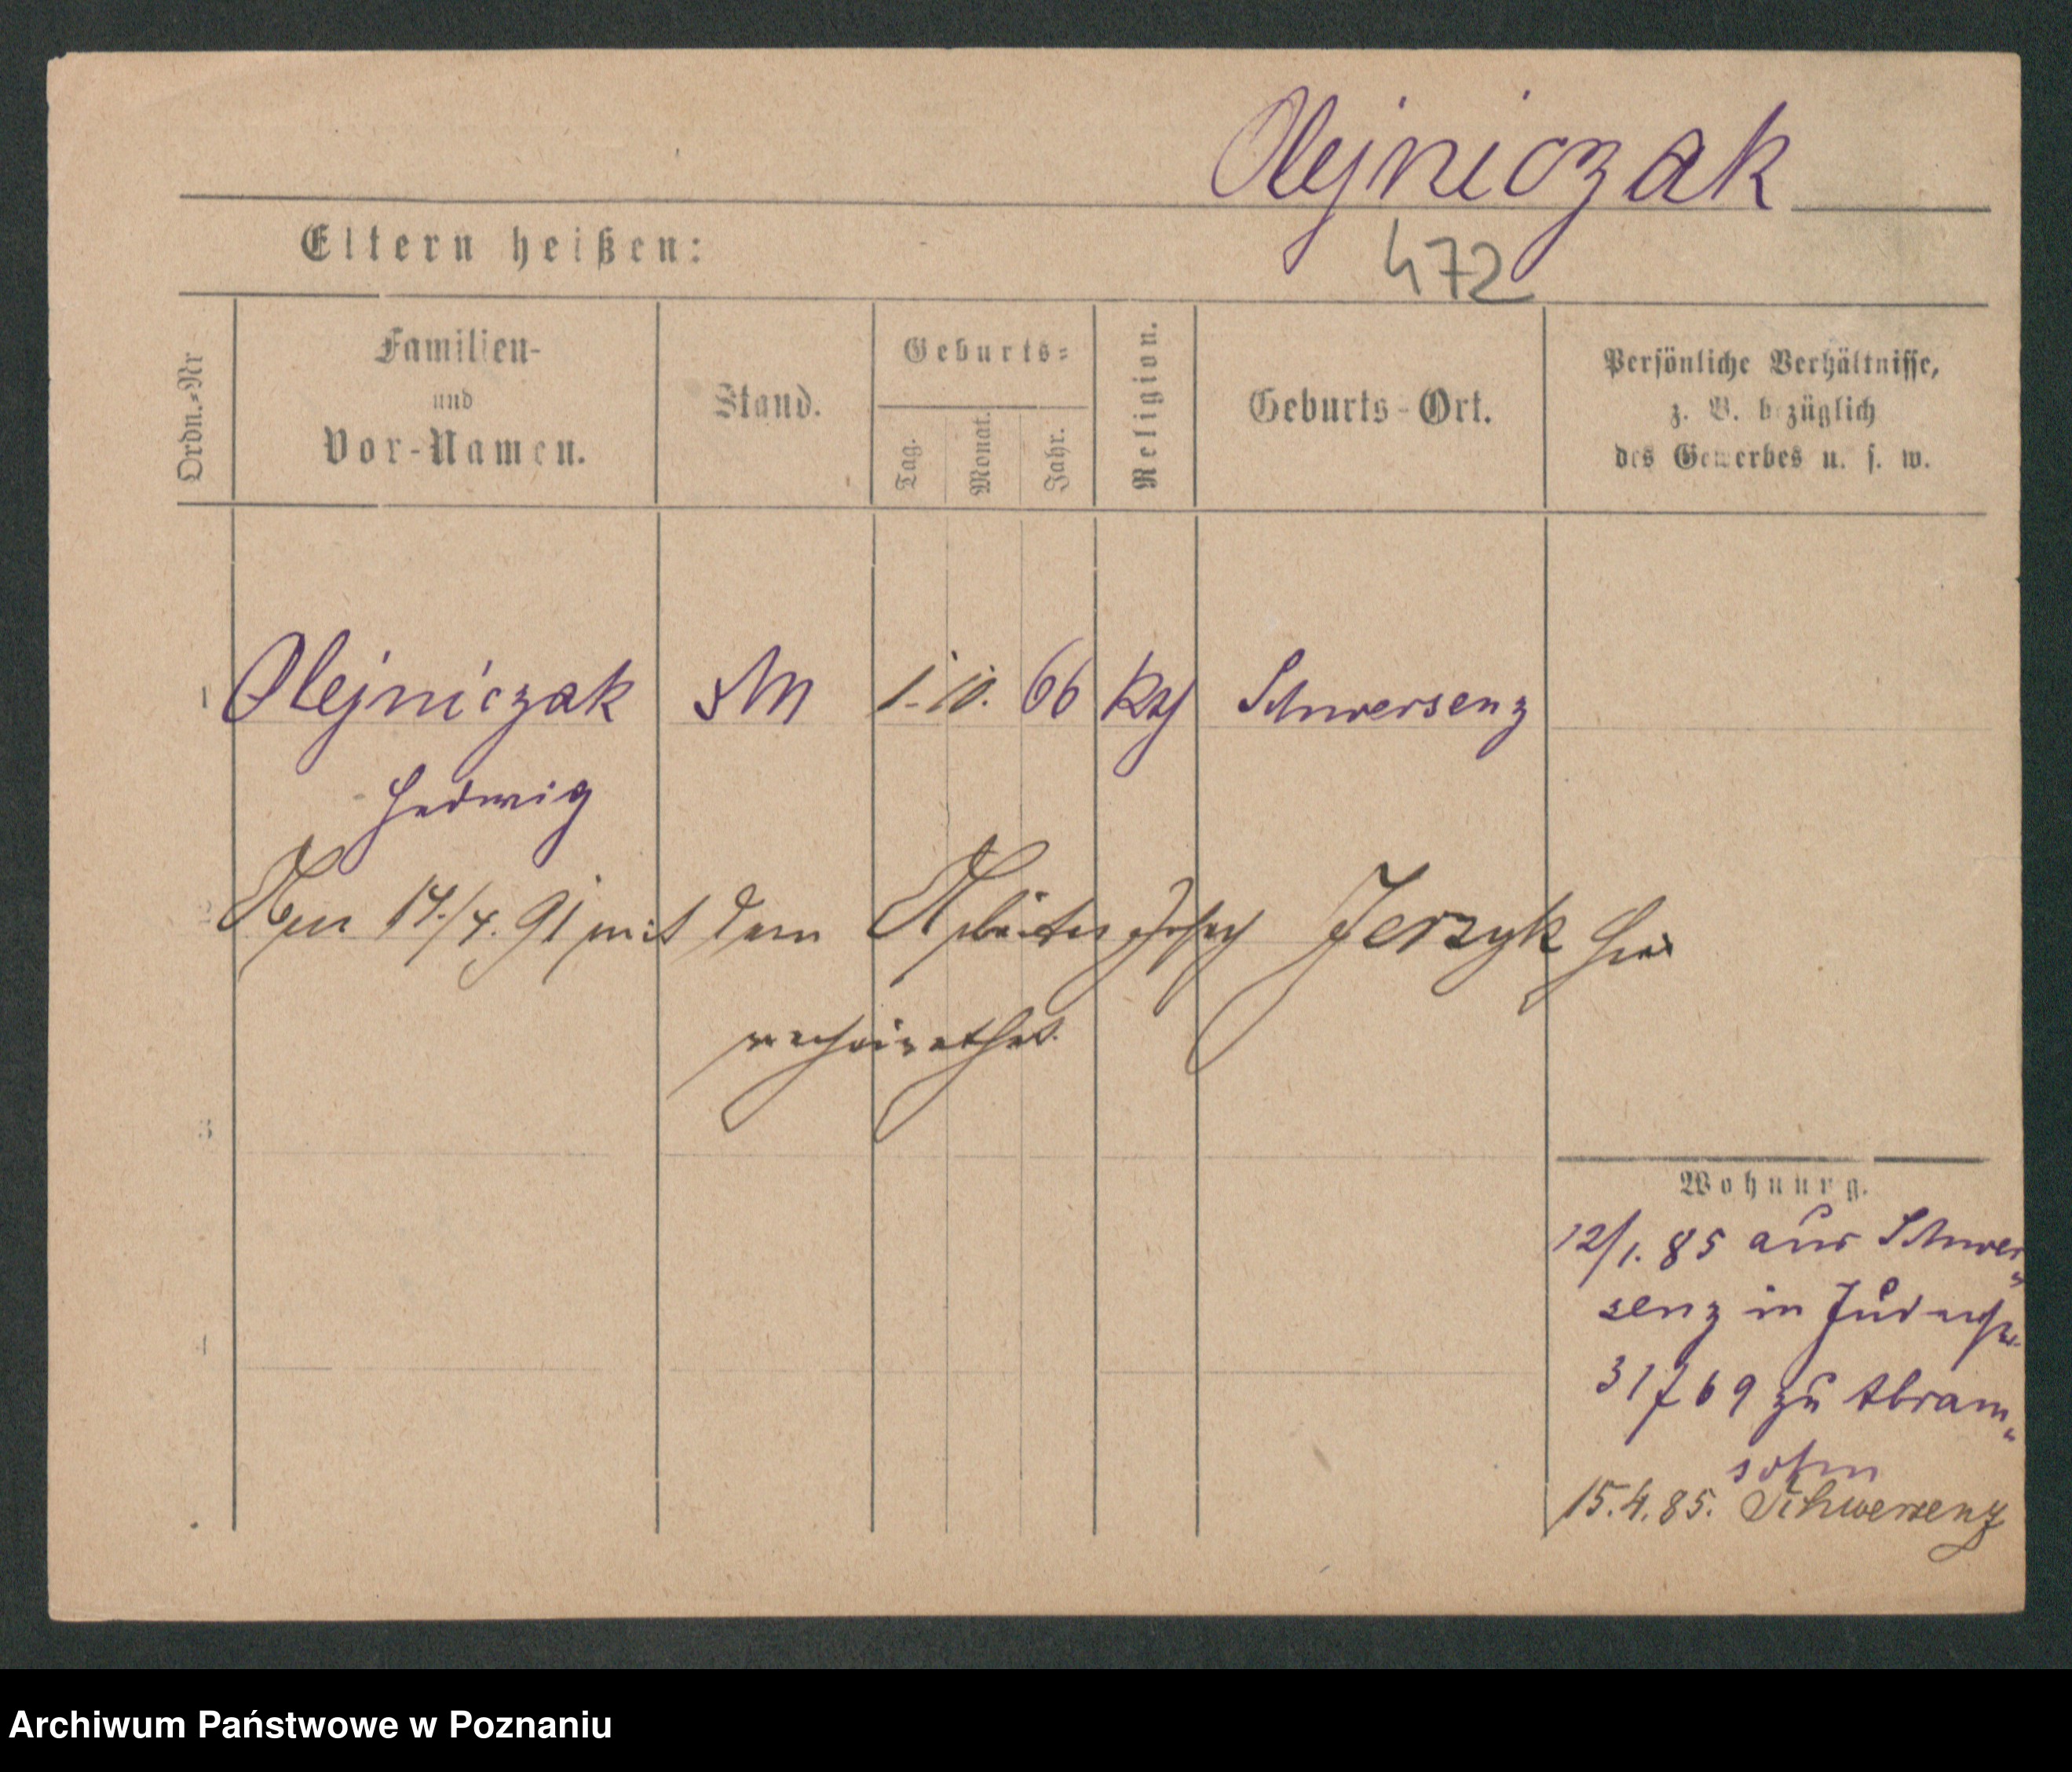 Olejniczak
Eltern heißen:
472
Ordn.-Nr
Familien-
und
Vor-Namen.
Stand.
Geburts-
Tag.
Monat.
Jahr.
Religion.
Geburts-Ort.
Persönliche Verhältnisse,
z. B. bezüglich
des Gewerbes u. s. w.
1 Olejniczak 1. 10. 66 kth Schwersenz
Hedwig
2 14./4. 91 mit dem Arbeiter Joseph Jerzyk hier
verheirathet.
3
Wohnung.
12/1. 85 aus Schwer-
senz in Judenstr.
31/69 zu Abram-
sohn
4
15.4.85. Schwersenz
Archiwum Państwowe w Poznaniu